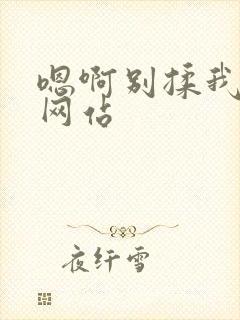 嗯啊别揉我
网佔
夜纤雪